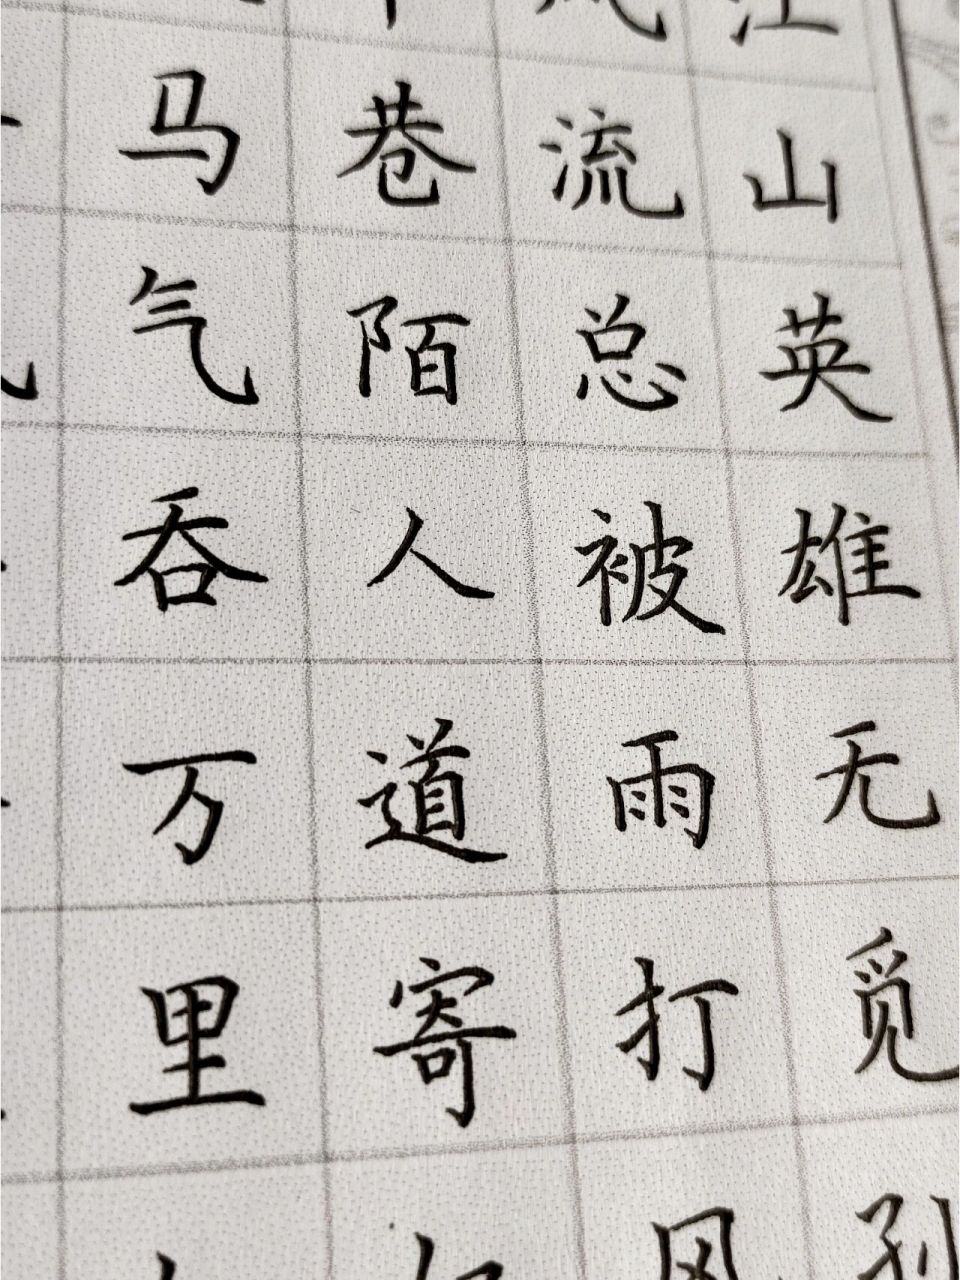 江山英雄无觅孙
风流总被雨打风
巷陌人道寄
马气吞万里